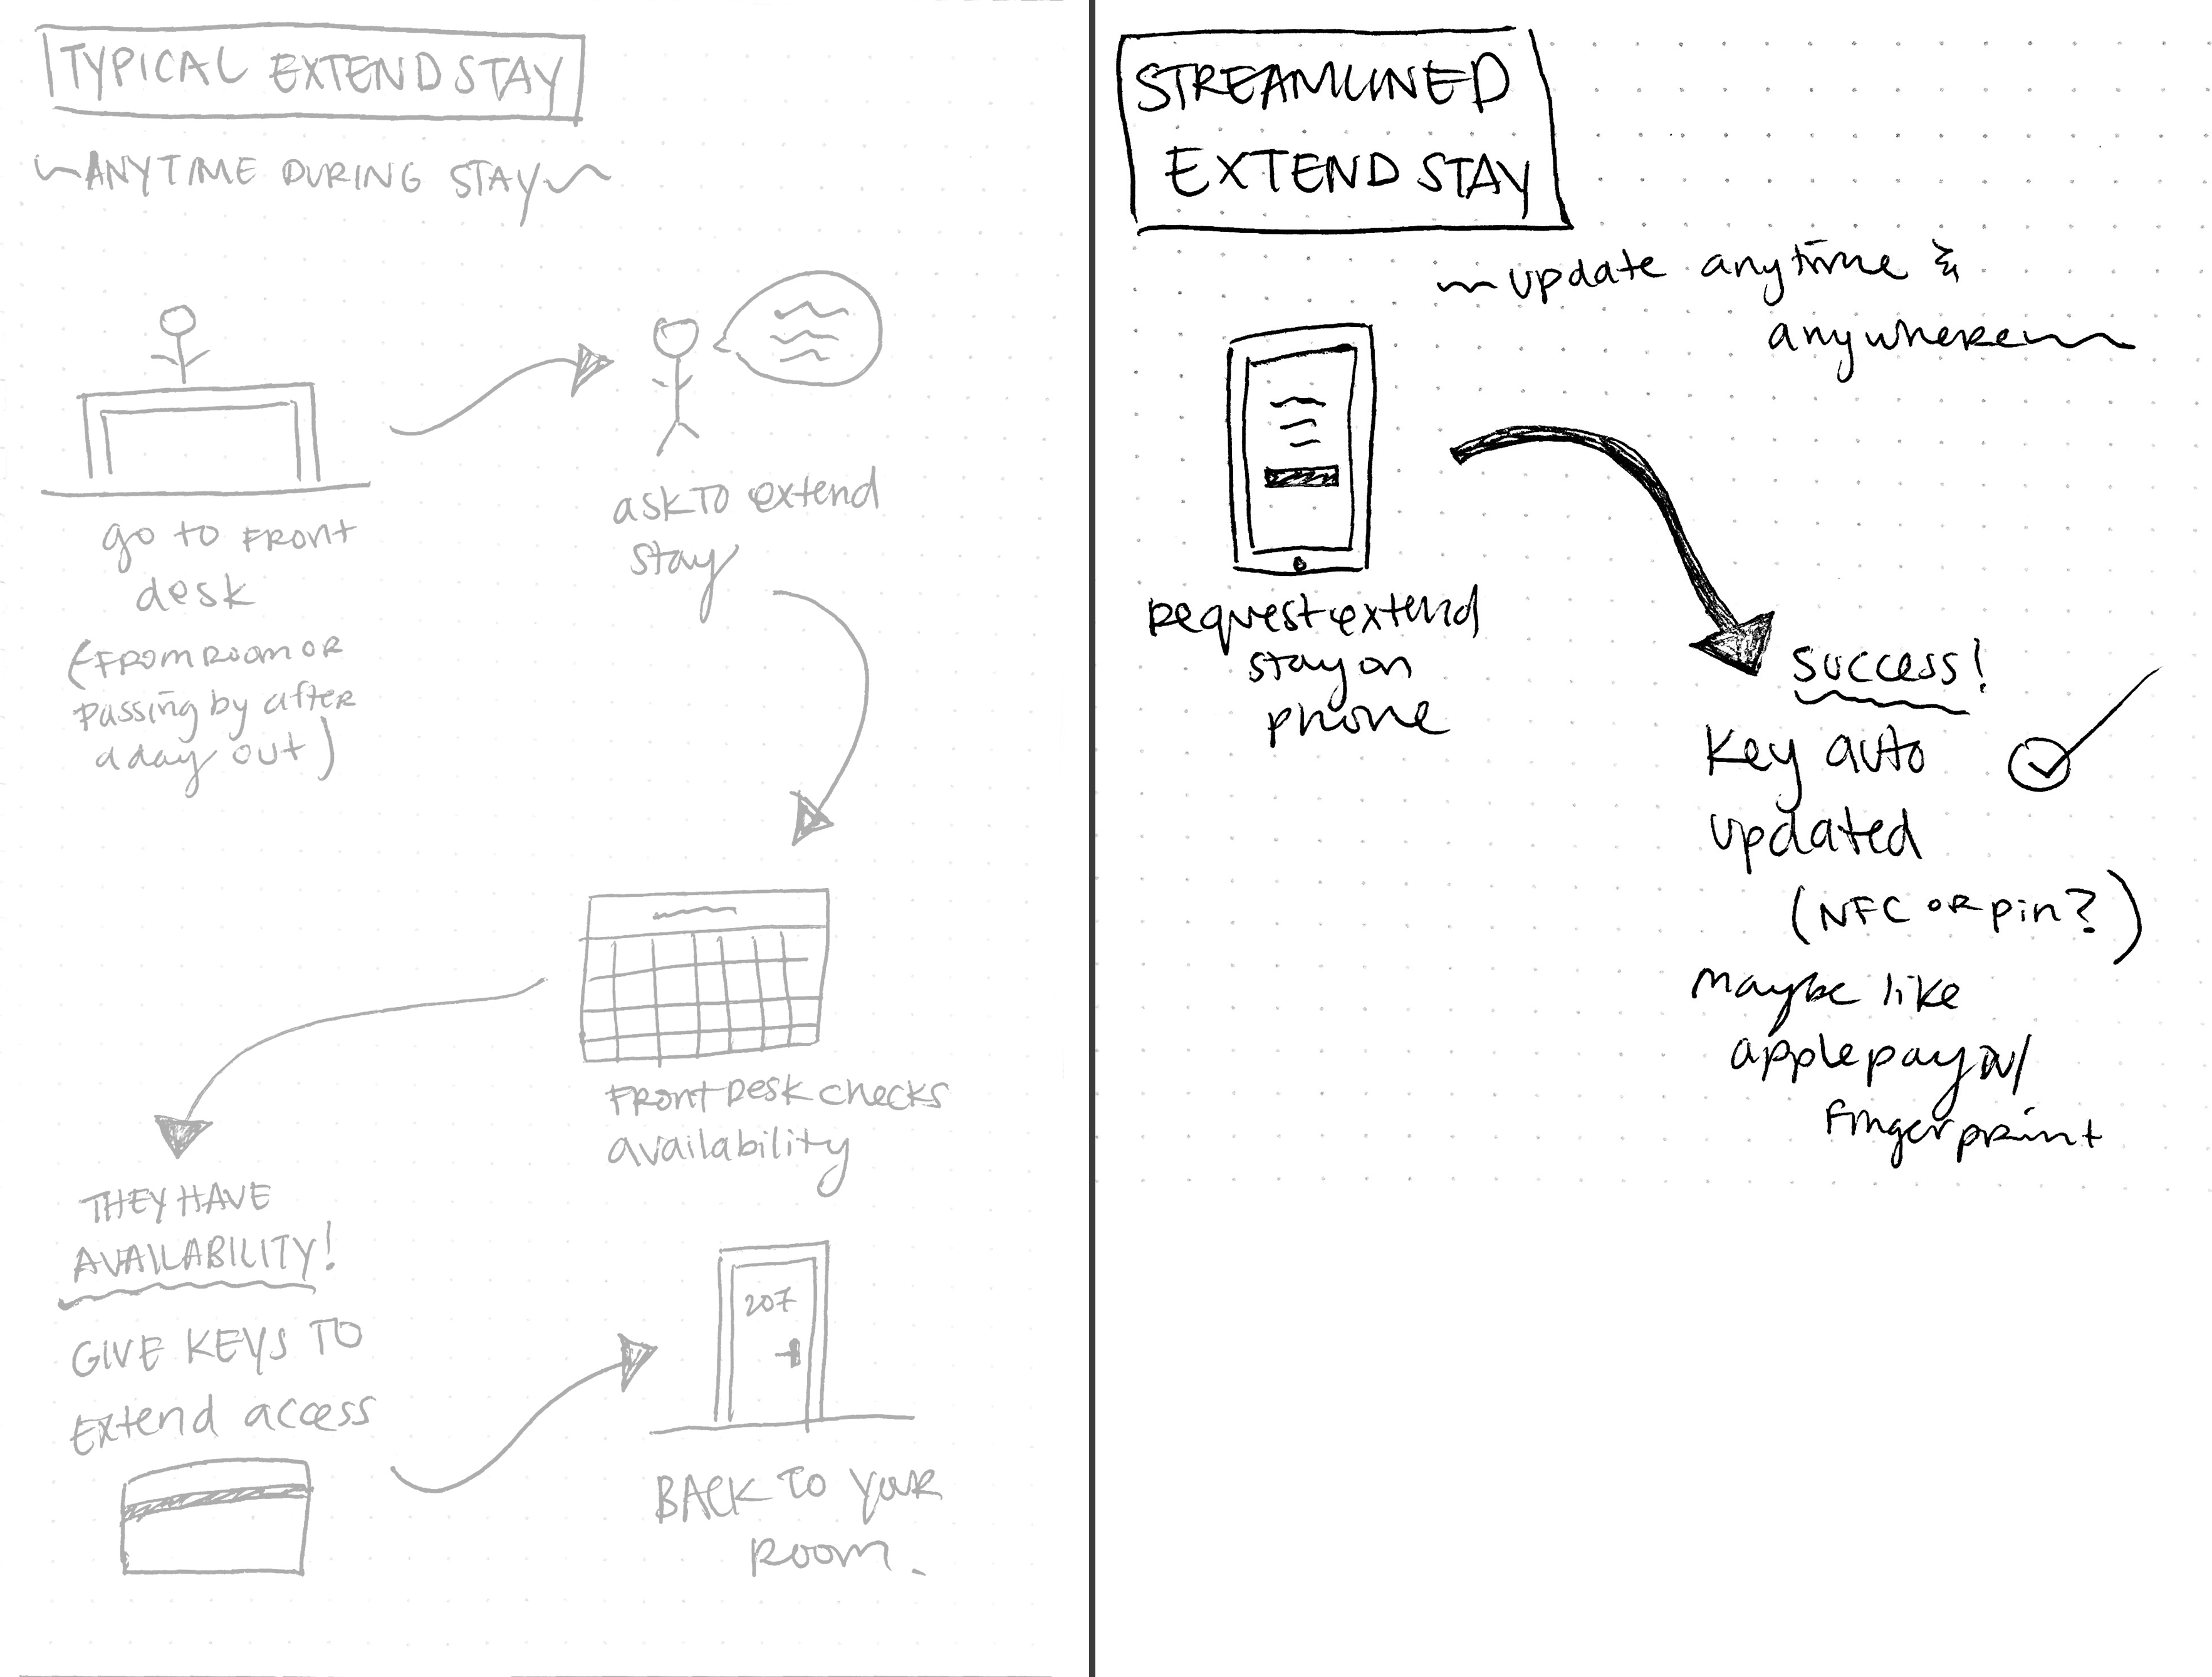 TYPICAL EXTEND STAY
ANYTIME DURING STAY
go to FRont
desk
(FROM ROOM OR
passing by after
a day out)
ask TO extend
stay
FRONT DESK checks
availability
THEY HAVE
AVAILABILITY!
GIVE KEYS TO
Extend access
207
BACK TO YOUR
ROOM.
STREAMLINED
EXTEND STAY
update anytime &
anywhere
Request extend
stay on
phone
success!
Key auto
updated
(NFC OR pin?)
maybe like
apple pay w/
fingerprint